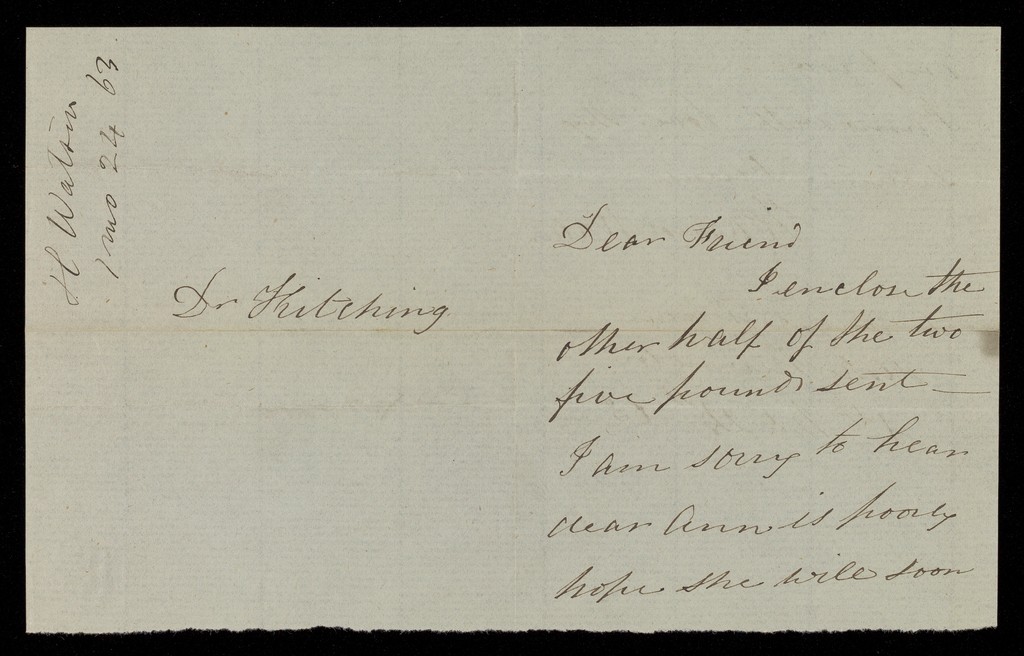 H Watson
1 mo 24 63
Dr Kitching
Dear Friend
I enclose the
other half of the two
five pounds sent —
I am sorry to hear
dear Ann is poorly
hope she will soon